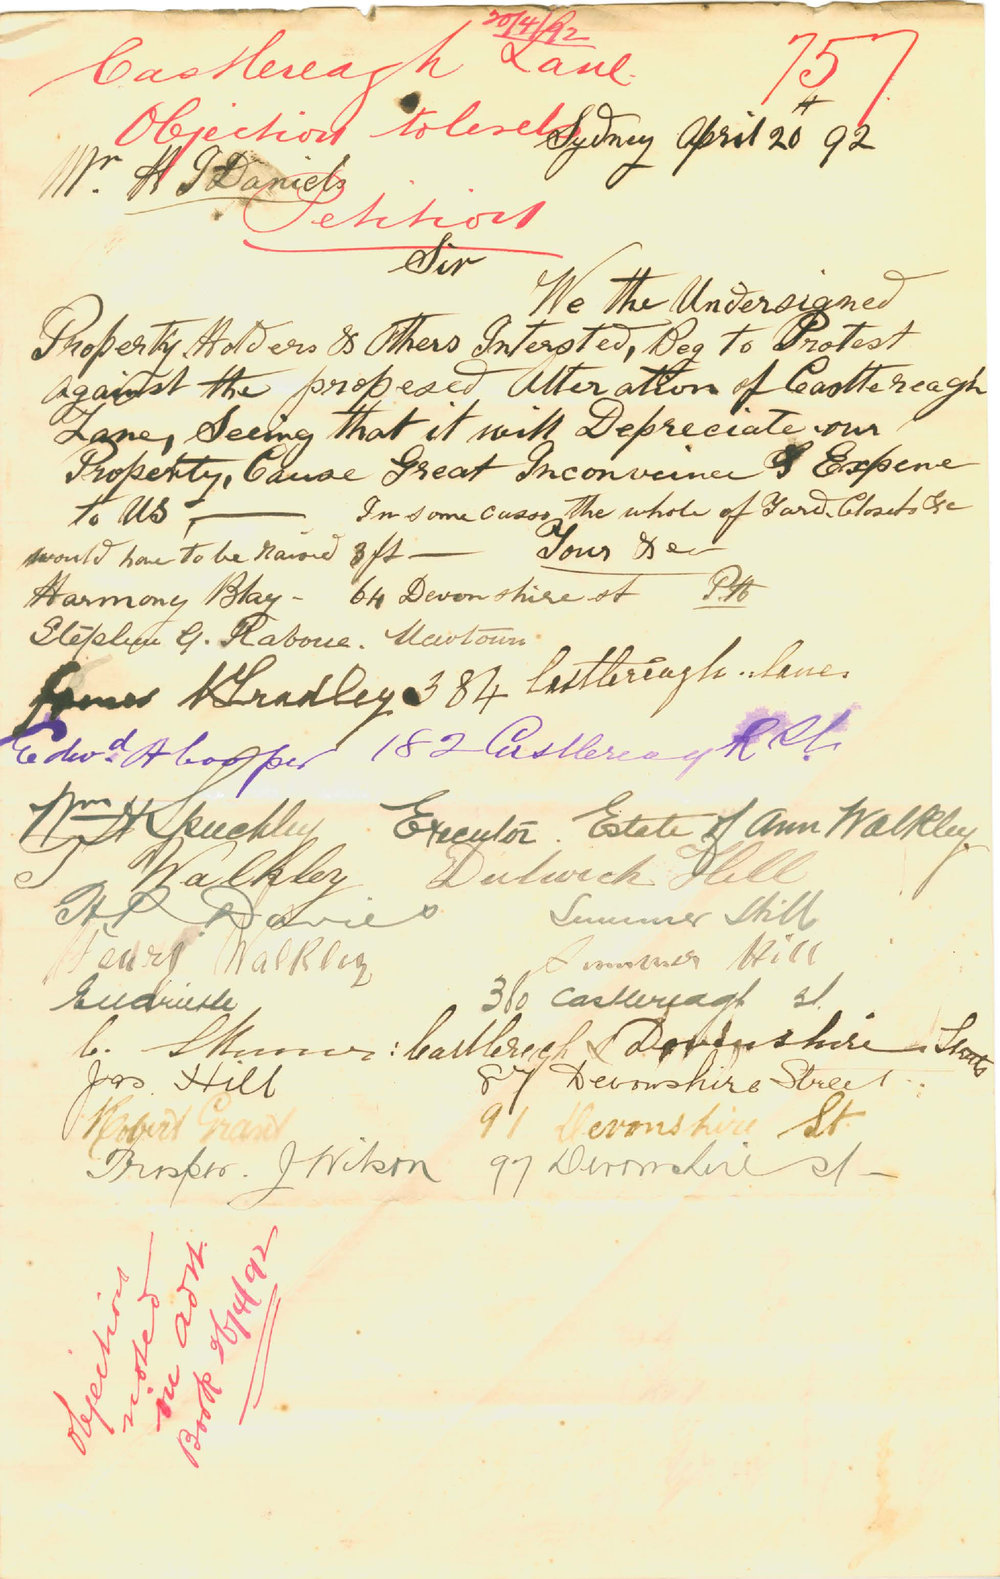 20/4/92
Castlereagh Lane
757
Objection to levels
Sydney April 20th 92
Mr. H J Daniels
Petition
Sir
We the Undersigned
Property Holders & Others Intersted, Beg to Protest
against the proposed Alteration of Castlereagh
Lane, Seeing that it will Depreciate our
Property, Cause Great Inconveince & Expene
to US, — In some cases the whole of Yard, Closets &c
would have to be raised 3ft — Your &c
Harmony Blay - 64 Devonshire st P.H
Stephen G. Rabone. Newtown
James Bradley 384 Castlereagh lane
Edwd A Cooper 182 Castlereagh St.
Wm H Speechley Executor. Estate of Ann Walkley
Walkley Dulwich Hill
Davies Summer Hill
Henry Walkley Summer Hill
Castlereagh st.
C. Skinner: Castlereagh & Devonshire Streets
Jas Hill 87 Devonshire Street
Robert Grant 91 Devonshire St.
Prosper. J Wilson 97 Devonshire st
Objection
noted
in advt.
Book 26/4/92